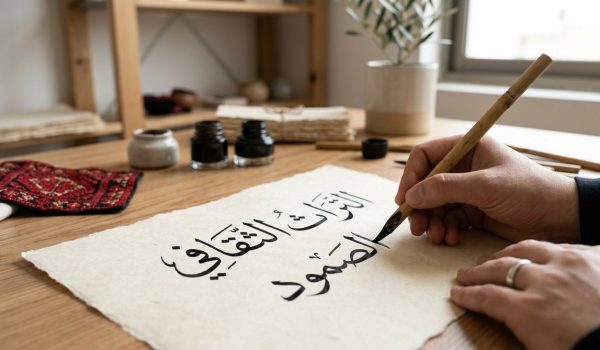 التراث الثقافي
الصمود